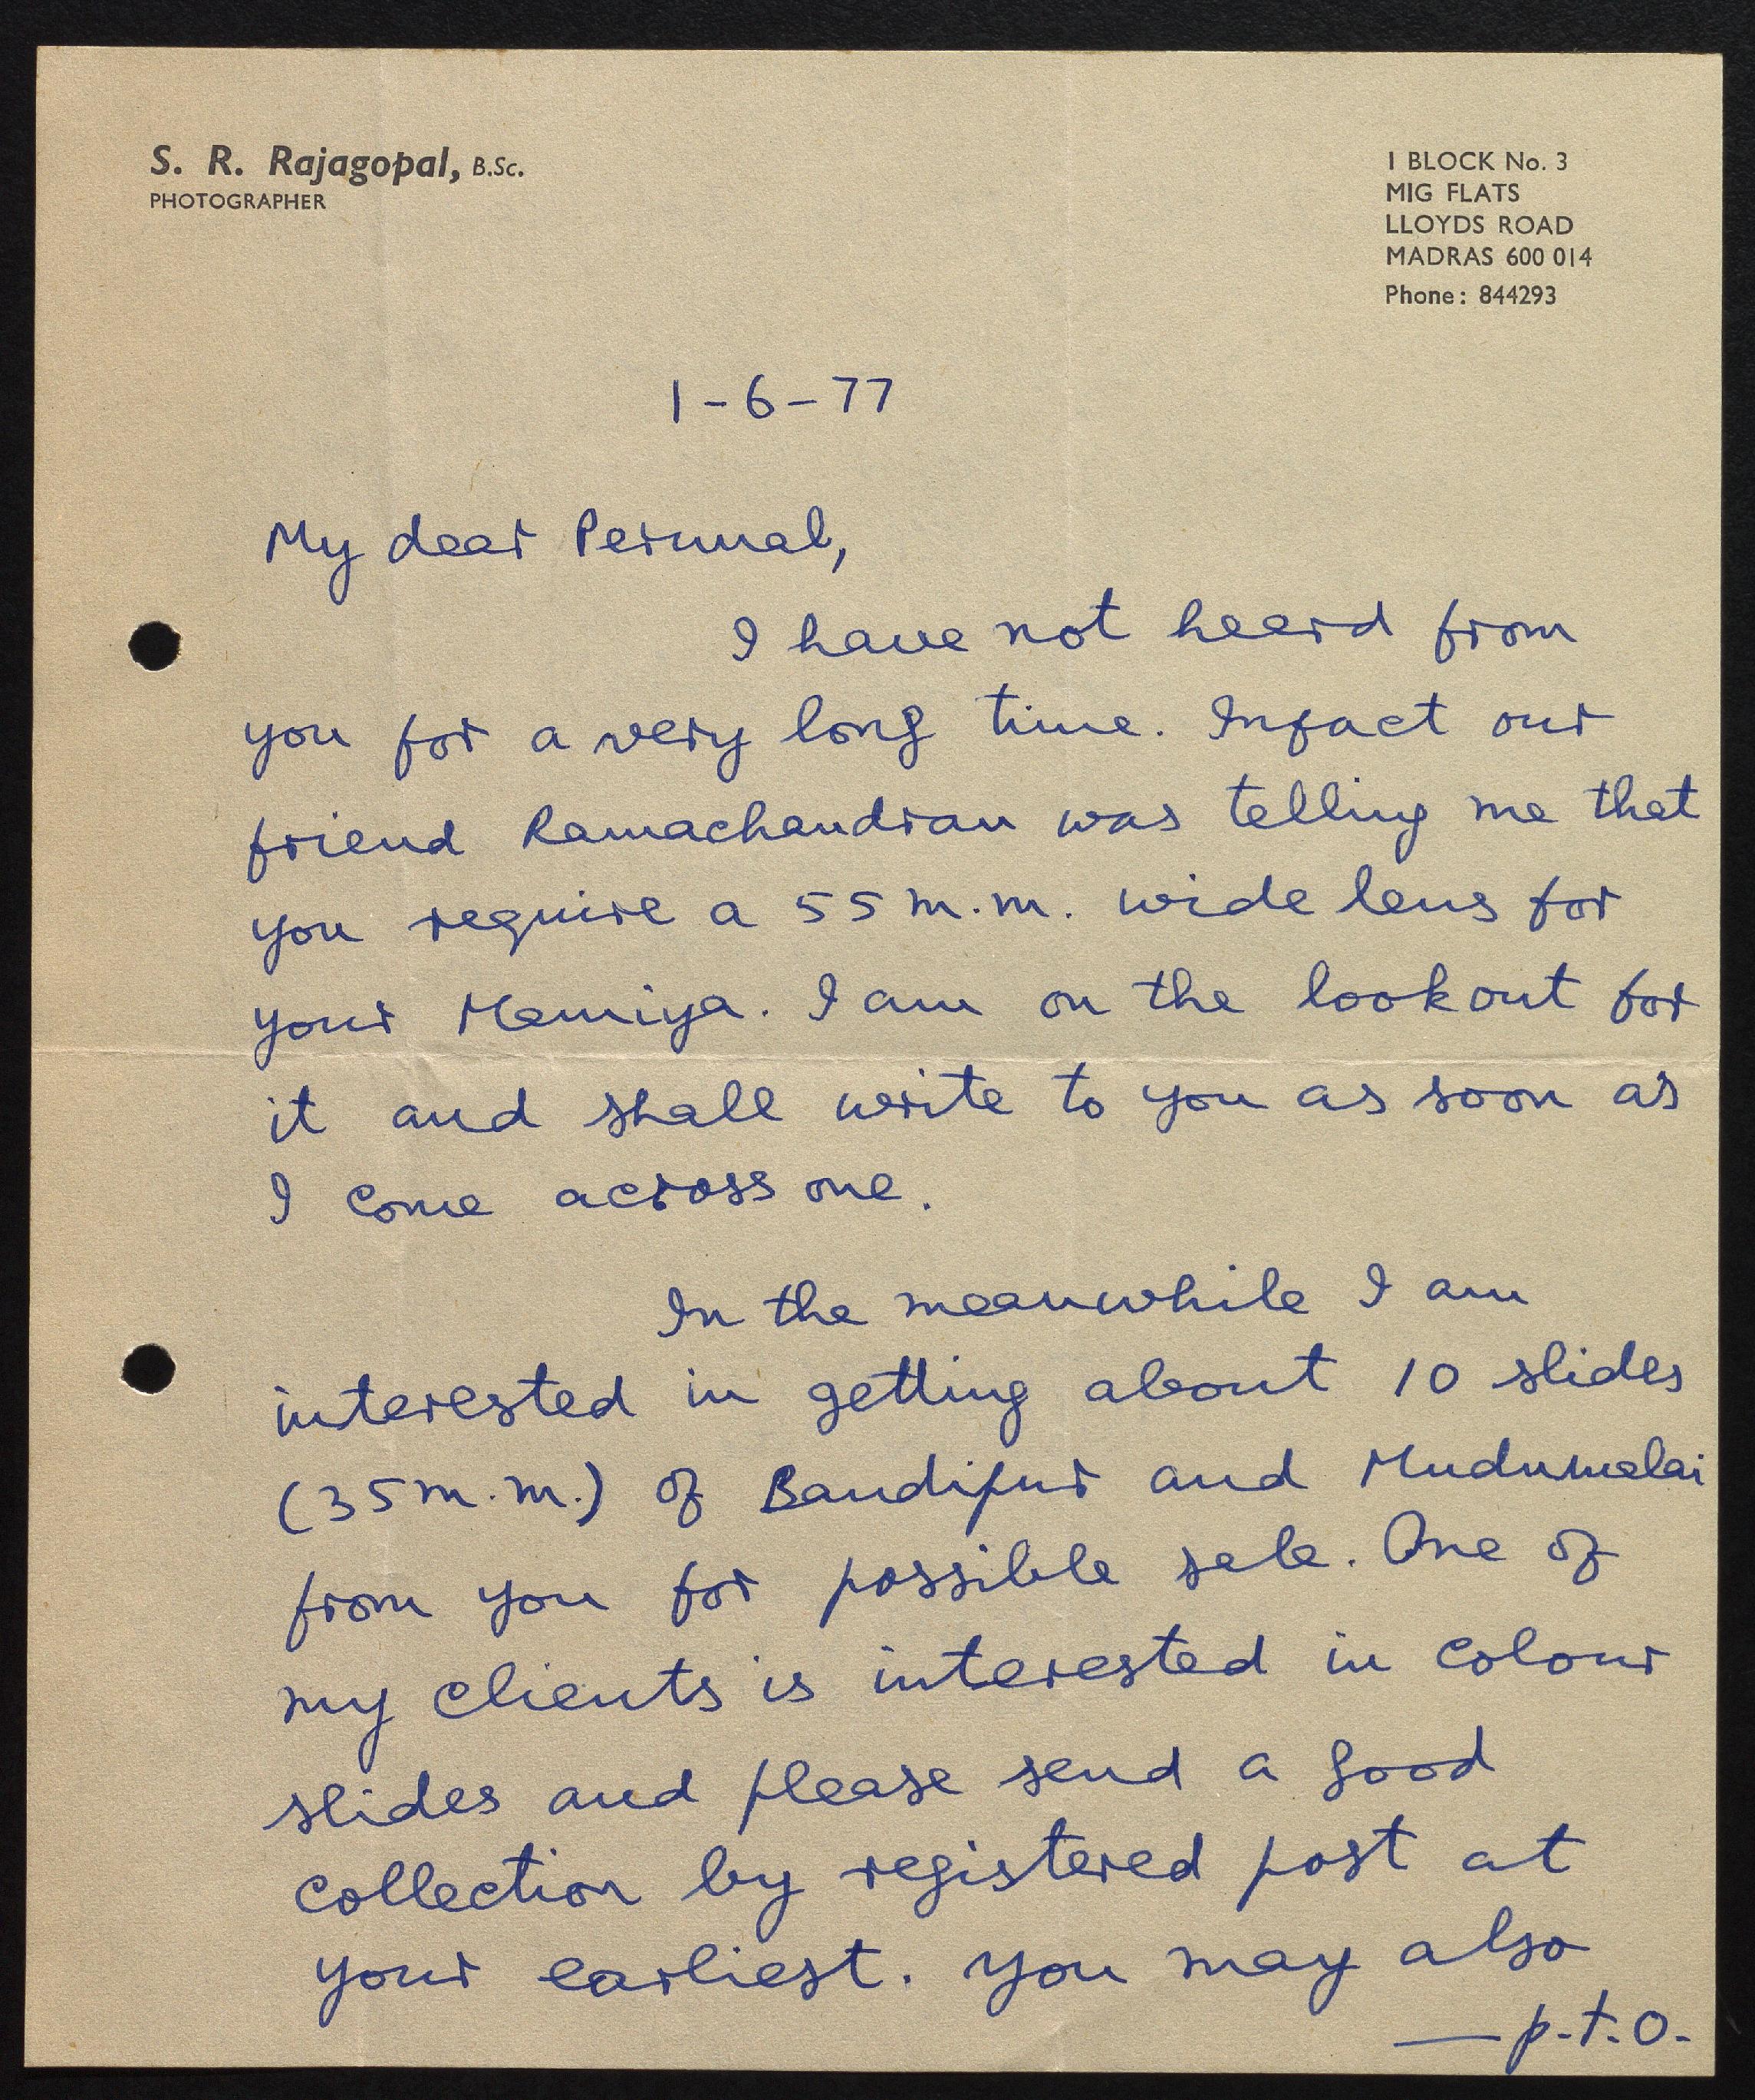 S. R. Rajagopal, B.Sc.
PHOTOGRAPHER
1 BLOCK No. 3
MIG FLATS
LLOYDS ROAD
MADRAS 600 014
Phone: 844293
1-6-77
My dear Perumal,
I have not heard from
you for a very long time. Infact our
friend Ramachandran was telling me that
you require a 55 m.m. wide lens for
your Mamiya. I am on the lookout for
it and shall write to you as soon as
I come across one.
In the meanwhile I am
interested in getting about 10 slides
(35 m.m.) of Bandipur and Mudumalai
from you for possible sale. One of
my clients is interested in colour
slides and please send a good
collection by registered post at
your earliest. You may also
— p.t.o.